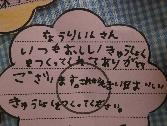 ちょうりいんさん
いつもおいしいきゅうしょく
をつくってくれてありがとう
ございます。これからもおいしい
きゅうしょくをつくってください。